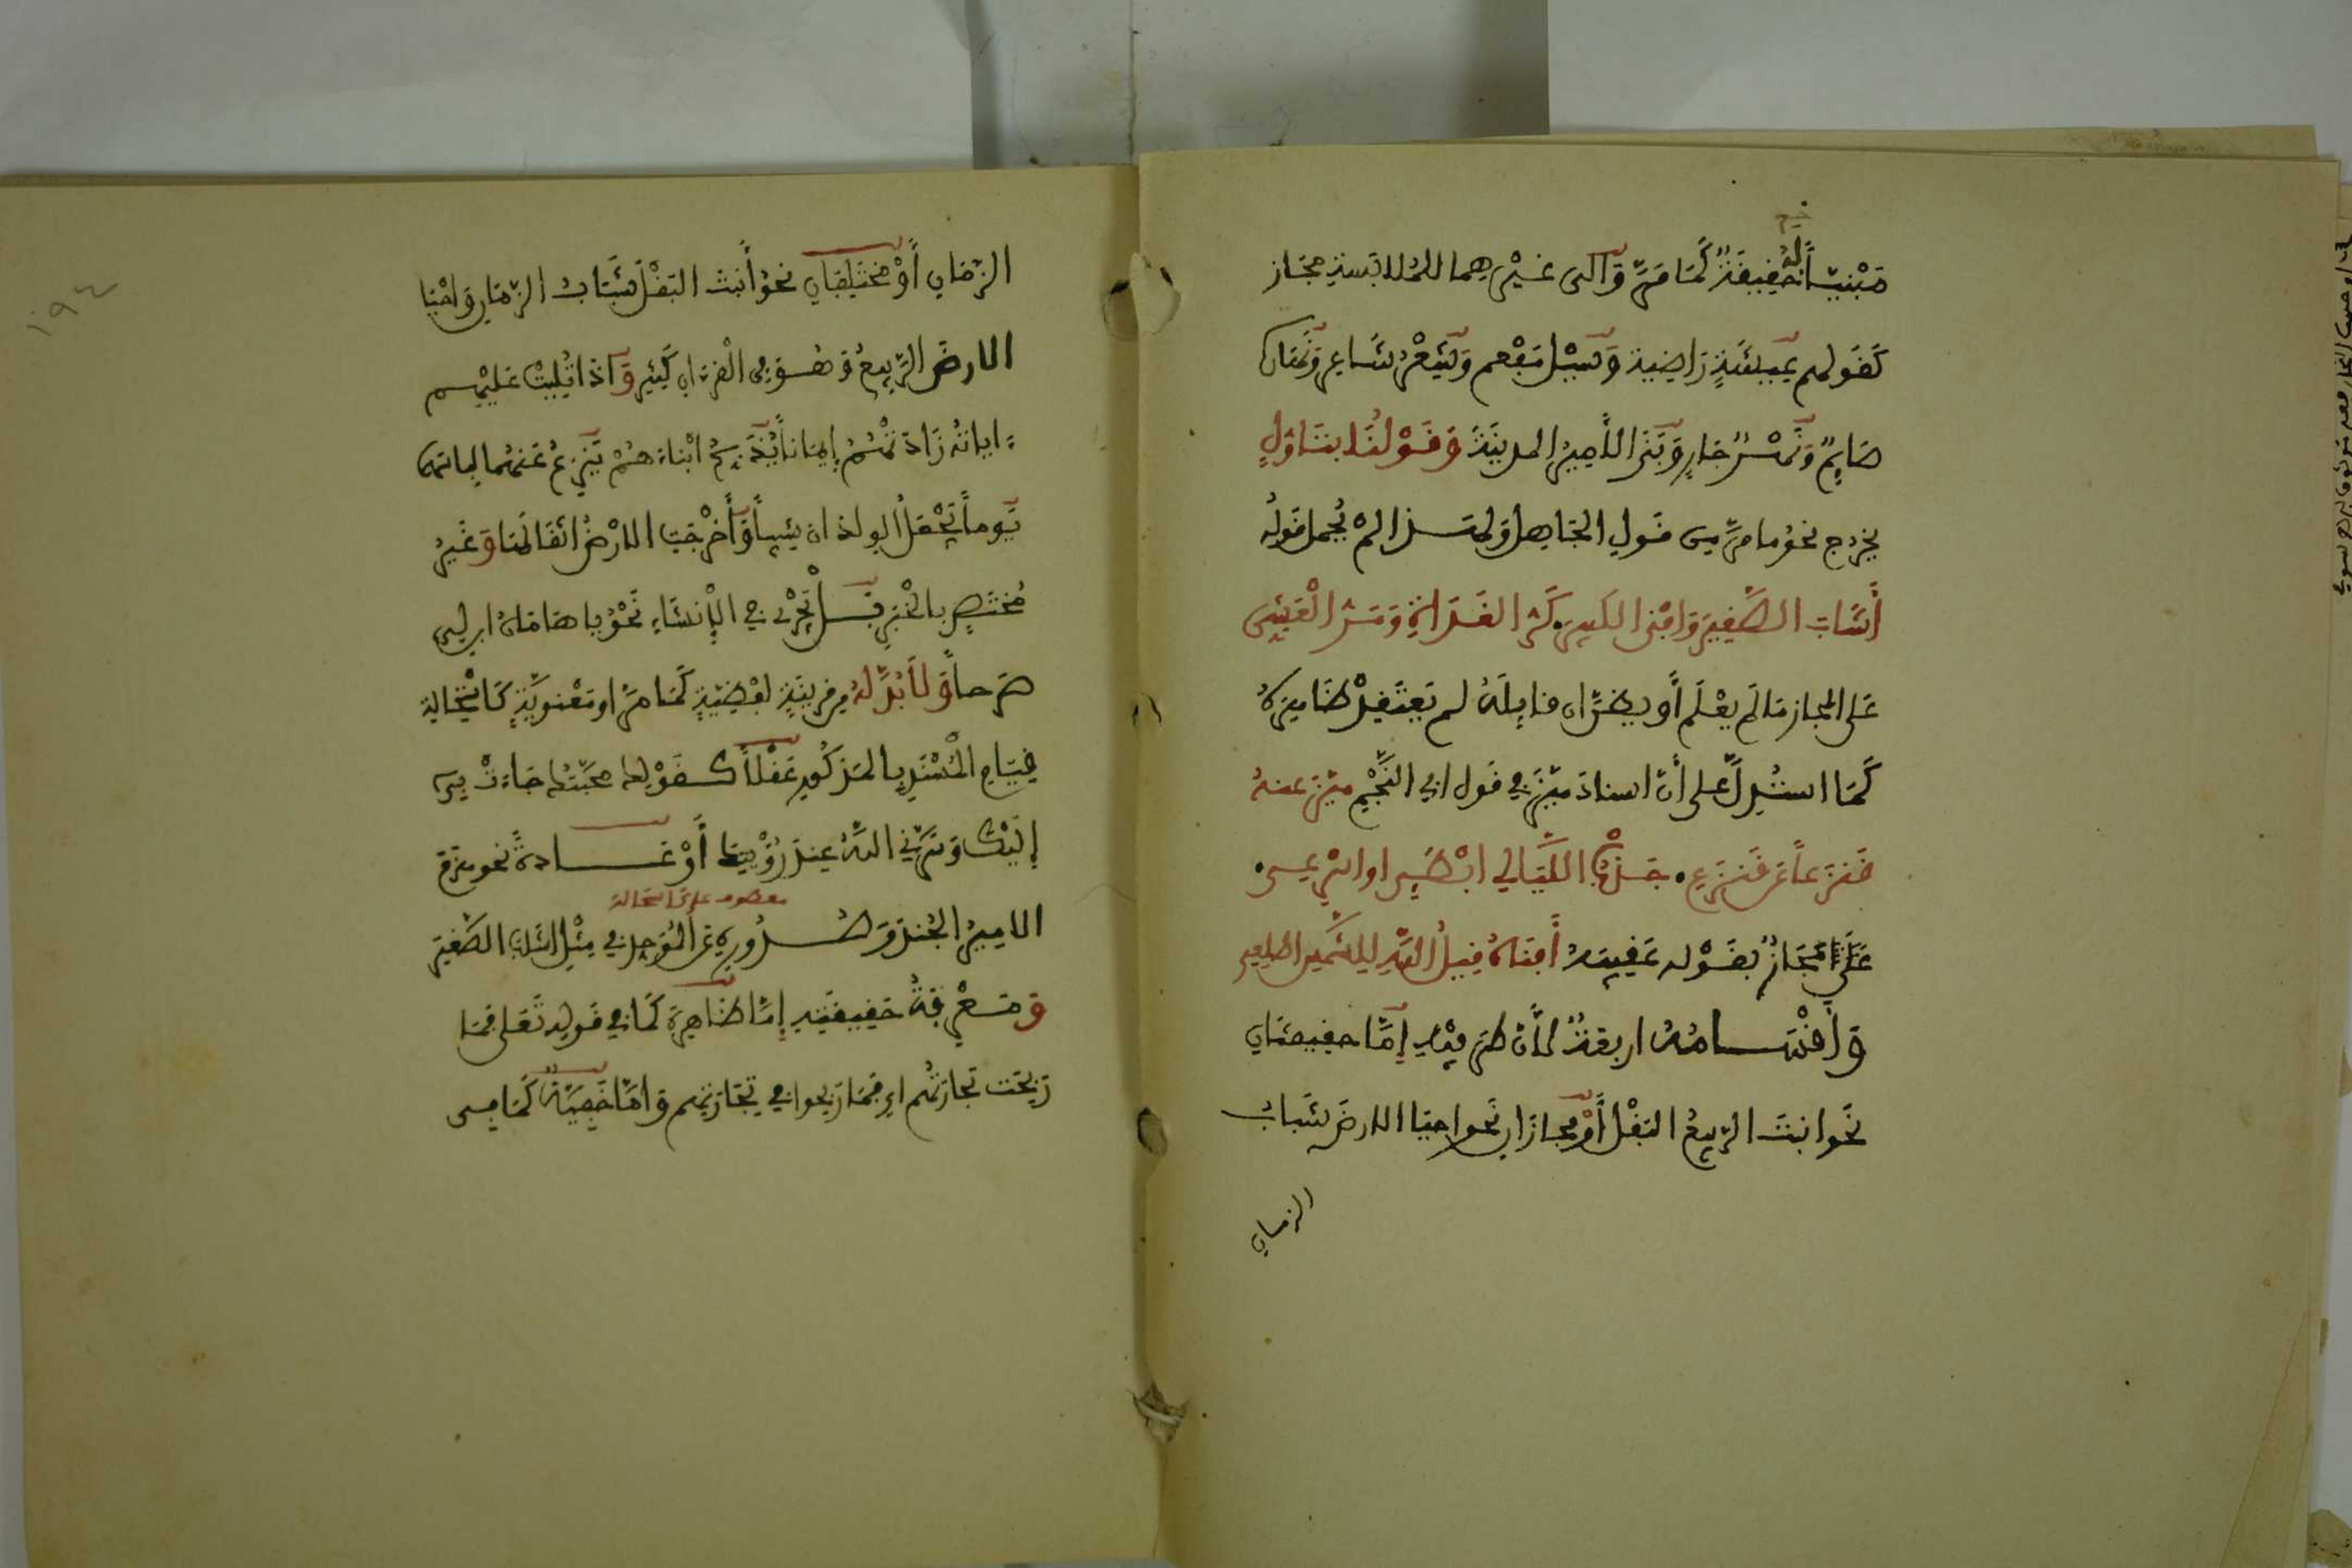 مَبْنِيّاً لَهُ حَفِيفَةٌ كَمَا مَرَّ وَإِلَى غَيْرِهِمَا لِلْمُلَابَسَةِ مَجَاز
كَفَولهم عِيشَةٍ رَاضِية وَسَيْل مُفْعم وَشِعْرٌ شَاعِر وَنَهَارُه
صَايِمٌ وَنَهْرٌ جَارٍ وَبَنَى الْأَمِيرُ المدينَةَ وَقَوْلُنَا بِتَأوّلٍ
يخرج نحو ما مرّ من قول الجاهل ولهذا لم يُحمل قوله
أَشَابَ الصَّغِيرَ وَافْنَى الكَبِيرَ كَرُّ الغَدَاةِ وَمَرُّ الْعَشِي
عَلى المجاز مَا لَم يعْلَم أَو يظنّ ان قايلَهُ لم يَعتَقِدْ ظَاهِرَهُ
كَمَا استُدِلَّ على أَنّ اسنادَ مَيَّزَ في قَول ابي النَّجْمِ مَيَّزَ عَنهُ
قُنزعاً عَن قنزعِ جَذْبُ اللَّيَالِي ابْطَئِي او اسْرِعِي
عَلَى المَجَازُ بِقَوْله عَقِيبَهُ أَفنَاهُ قِيلُ اللهِ لِلشَّمسِ اطلعي
وَأَقْسَامُهُ اربعَةٌ لأَنّ طَرَفَيْهِ إمَّا حقيقتَانِ
نَحو انبتَ الرّبيعُ البَقْلَ أَوْ مجازَانِ نَحو احيَا الارضَ شَبابُ
الزمان
الزّمَانِ أَوْ مُختَلِفَانِ نحوُ أَنبتَ البَقْلَ شَبَابُ الزّمَانِ وَاحْيَا
الارضَ الرَّبِيعُ وَهُوَ في الْقرءانِ كَثِير وَاذَا تُلِيَتْ عَلَيْهِم
ءاياتُه زَادَتْهُمْ إيمَاناً يُذَبِّحُ ابْنَاءَهُمْ يَنْزِعُ عَنهُما لِباسَهُمَا
يَوماً يَجْعَلُ الولدَان شِيباً وَأَخْرَجَتِ الارْضُ اثقَالَهَا وَغَيْرُ
مُخْتَصٍّ بالْخَبَرِ بَلْ يَجْرِي فِي الإِنْشَاءِ نَحْوُ يا هَامَانُ ابنِ لِي
صَرحاً وَلَا بُدَّ لَهُ من قرينَةٍ لَفْظِيَّةٍ كَمَا مَرَّ او مَعْنَوِيَّةٍ كَاسْتِحَالَةِ
قِيَامِ الْمُسْنَدِ بِالمَذكُورِ عَقْلاً كَقَوْلِك مَحَبَّتُك جَاءَتْ بِي
إِلَيْكَ وَسَرَّتْنِي اللهُ عِندَ رُؤْيَتِكَ أَوْ عَادَةً نحو هَزَمَ
معطوف على استحالة
الامِيرُ الجُندَ وَصُدُورِهِ عَنِ المُوَحِّدِ فِي مِثْلِ أَشَابَ الصَّغِيرَ
وَمَعْرِفَةُ حَقِيقَتِهِ إِمَّا ظَاهِرَة كَمَا فِي قَولِهِ تَعَلى فمَا
رَبِحَت تِجَارَتُهُم اي فَمَا رَبِحوا في تِجَارَتِهم وَاِمَّا خَفِيَّةٌ كَمَا في
١٩٤